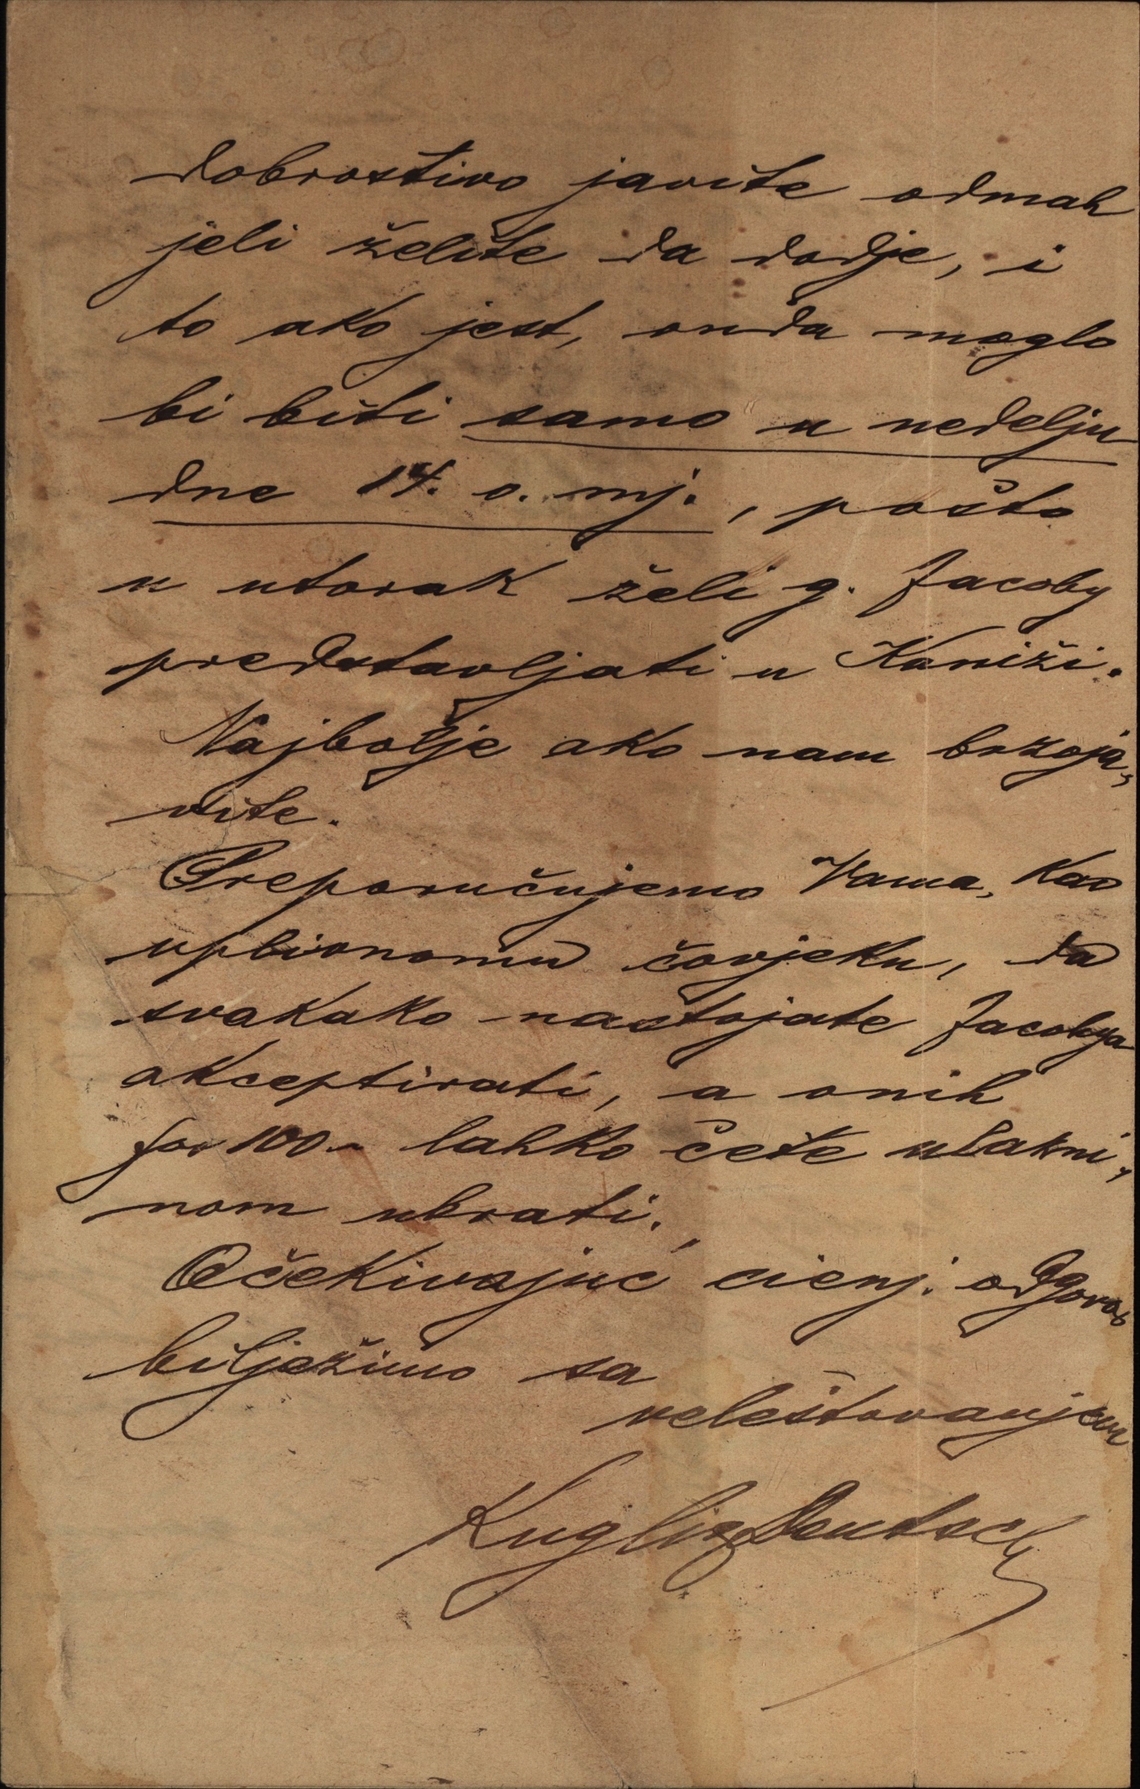 dobrostivo javite odmah
jeli želite da dodje, i
to ako jest, onda moglo
bi biti samo u nedelju
dne 14. o. mj., pošto
u utorak želi g. Jacoby
predstavljati u Kaniži.
Najbolje ako nam brzoja„
vite.
Preporučujemo Vama, kao
uplivnomu čovjeku, da
svakako nastojate Jacobya
akceptirati, a onih
for 100.- lahko ćete ulazni„
nom ubrati.
Očekivajuć cienj. odgovor
bilježimo sa
veleštovanjem
Kugli & Deutsch